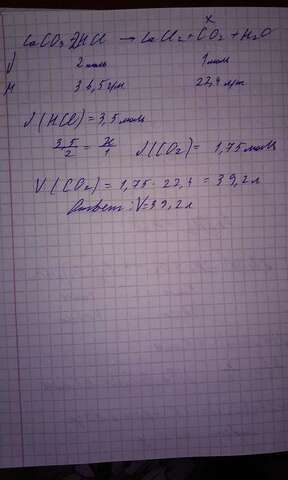 x
CaCO₃ 2HCl → CaCl₂ + CO₂ + H₂O
ν 2 моль 1 моль
M 36,5 г/м 22,4 л/м
ν(HCl) = 3,5 моль
3,5/2 = x/1 ν(CO₂) = 1,75 моль
V(CO₂) = 1,75 · 22,4 = 39,2 л
Ответ: V = 39,2 л